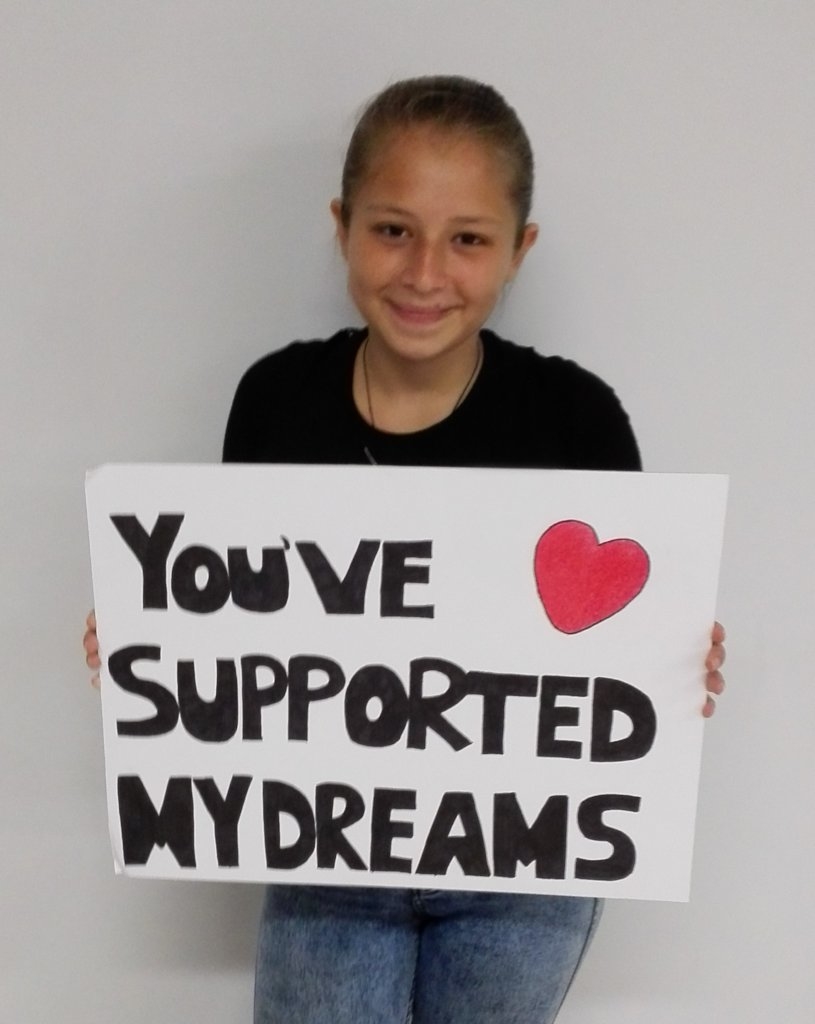 YOU'VE
SUPPORTED
MY DREAMS